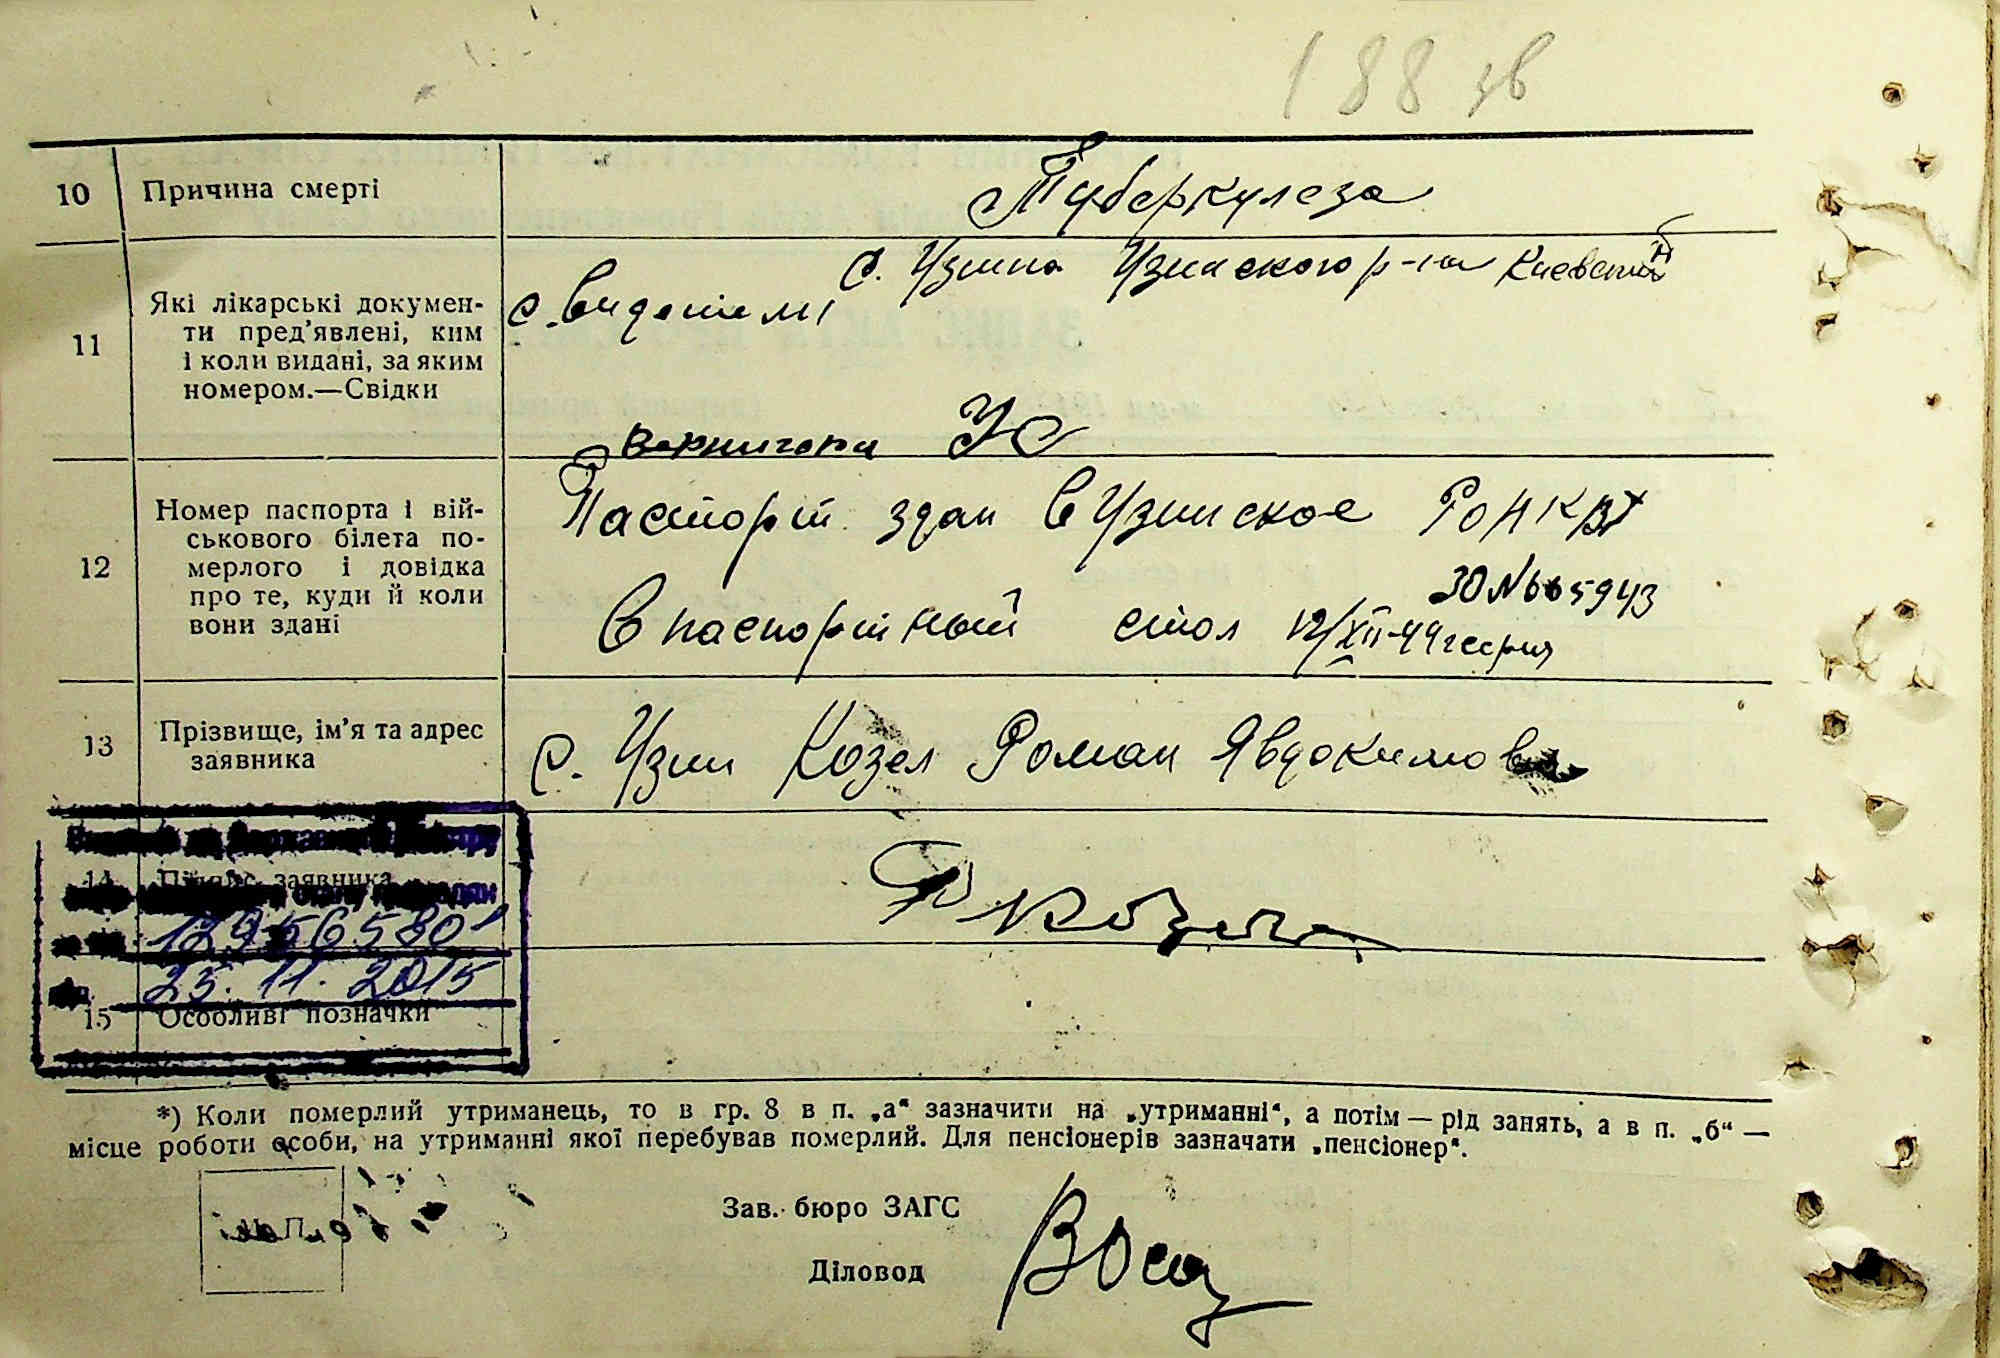 188 зв
10 Причина смерті Туберкулеза
с. Узина Узинского р-на Киевской
11 Які лікарські докумен-
ти пред'явлені, ким
і коли видані, за яким
номером.—Свідки
Вернигора
Паспорт здан в Узинское РОНКВД
12 Номер паспорта і вій-
ськового білета по-
мерлого і довідка
про те, куди й коли
вони здані
ЗО № 665943
В паспортный стол 12/XII-44 г серия
13 Прізвище, ім'я та адрес
заявника
с. Узин Козел Роман Явдокимов
14 Підпис заявника
Р Козел
12956580
25.11.2015
15 Особливі позначки
*) Коли померлий утриманець, то в гр. 8 в п. „а“ зазначити на „утриманні“, а потім — рід занять, а в п. „б“ —
місце роботи особи, на утриманні якої перебував померлий. Для пенсіонерів зазначати „пенсіонер“.
Зав. бюро ЗАГС
Діловод